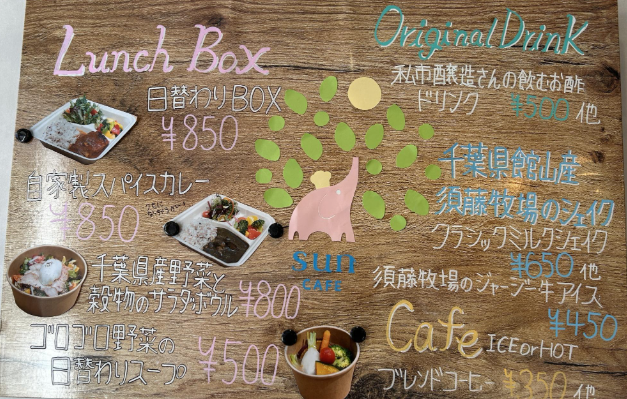 Lunch Box
日替わりBOX
¥850
自家製スパイスカレー
¥850
千葉県産野菜と
穀物のサラダボウル ¥800
ゴロゴロ野菜の
日替わりスープ ¥500
sun
CAFE
Original Drink
私市醸造さんの飲むお酢
ドリンク ¥500 他
千葉県館山産
須藤牧場のシェイク
クラシックミルクシェイク
¥650 他
須藤牧場のジャージー牛アイス
¥450
Cafe ICE or HOT
ブレンドコーヒー ¥350 他